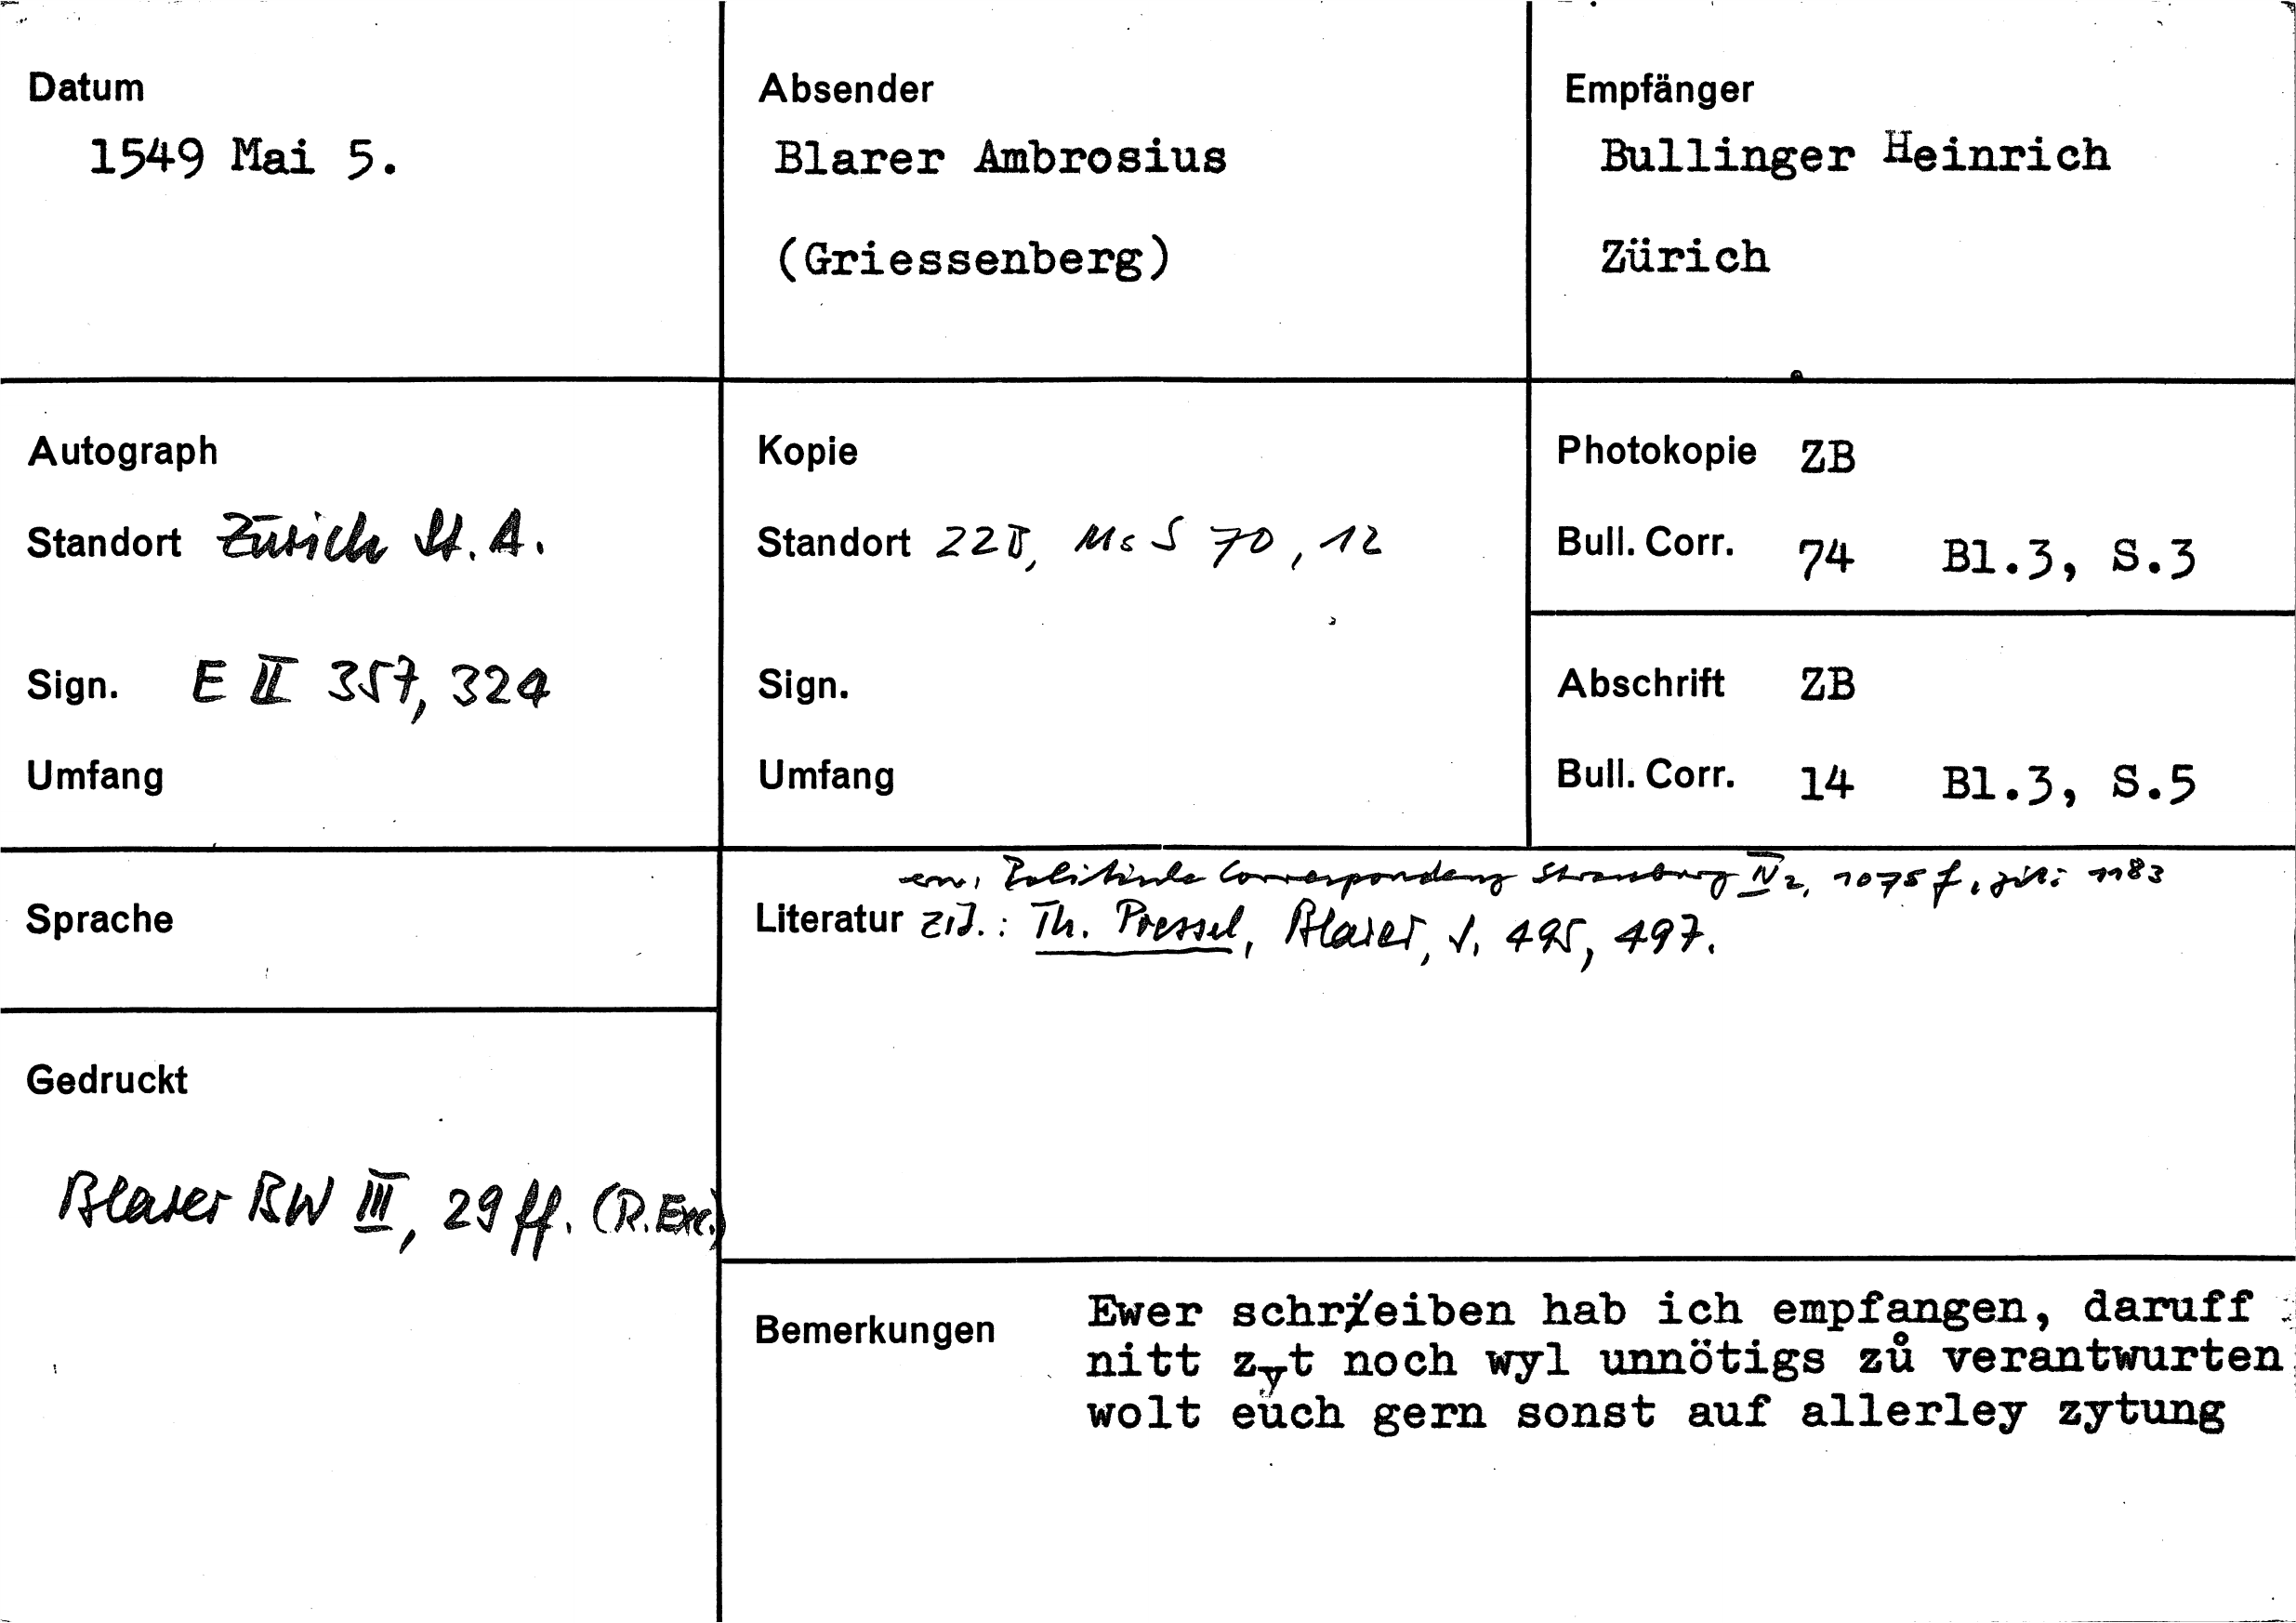 Datum
1549 Mai 5.
Absender
Blarer Ambrosius
(Griessenberg)
Empfänger
Bullinger Heinrich
Zürich
Autograph
Standort Zürich St. A.
Sign. E II 357, 324
Umfang
Kopie
Standort ZZB, Ms S 70, 12
Sign.
Umfang
Photokopie ZB
Bull. Corr. 74 Bl.3, S.3
Abschrift ZB
Bull. Corr. 14 Bl.3, S.5
Sprache
Gedruckt
Blarer BW III, 29 ff. (R.Exc.)
Politische Correspondenz Strassburg IV 2, 1075 f, zit: 1183
Literatur zit.: Th. Pressel, Blarer, S. 495, 497.
Bemerkungen
Ewer schreiben hab ich empfangen, daruff
nitt zyt noch wyl unnötigs zů verantwurten
wolt euch gern sonst auf allerley zytung